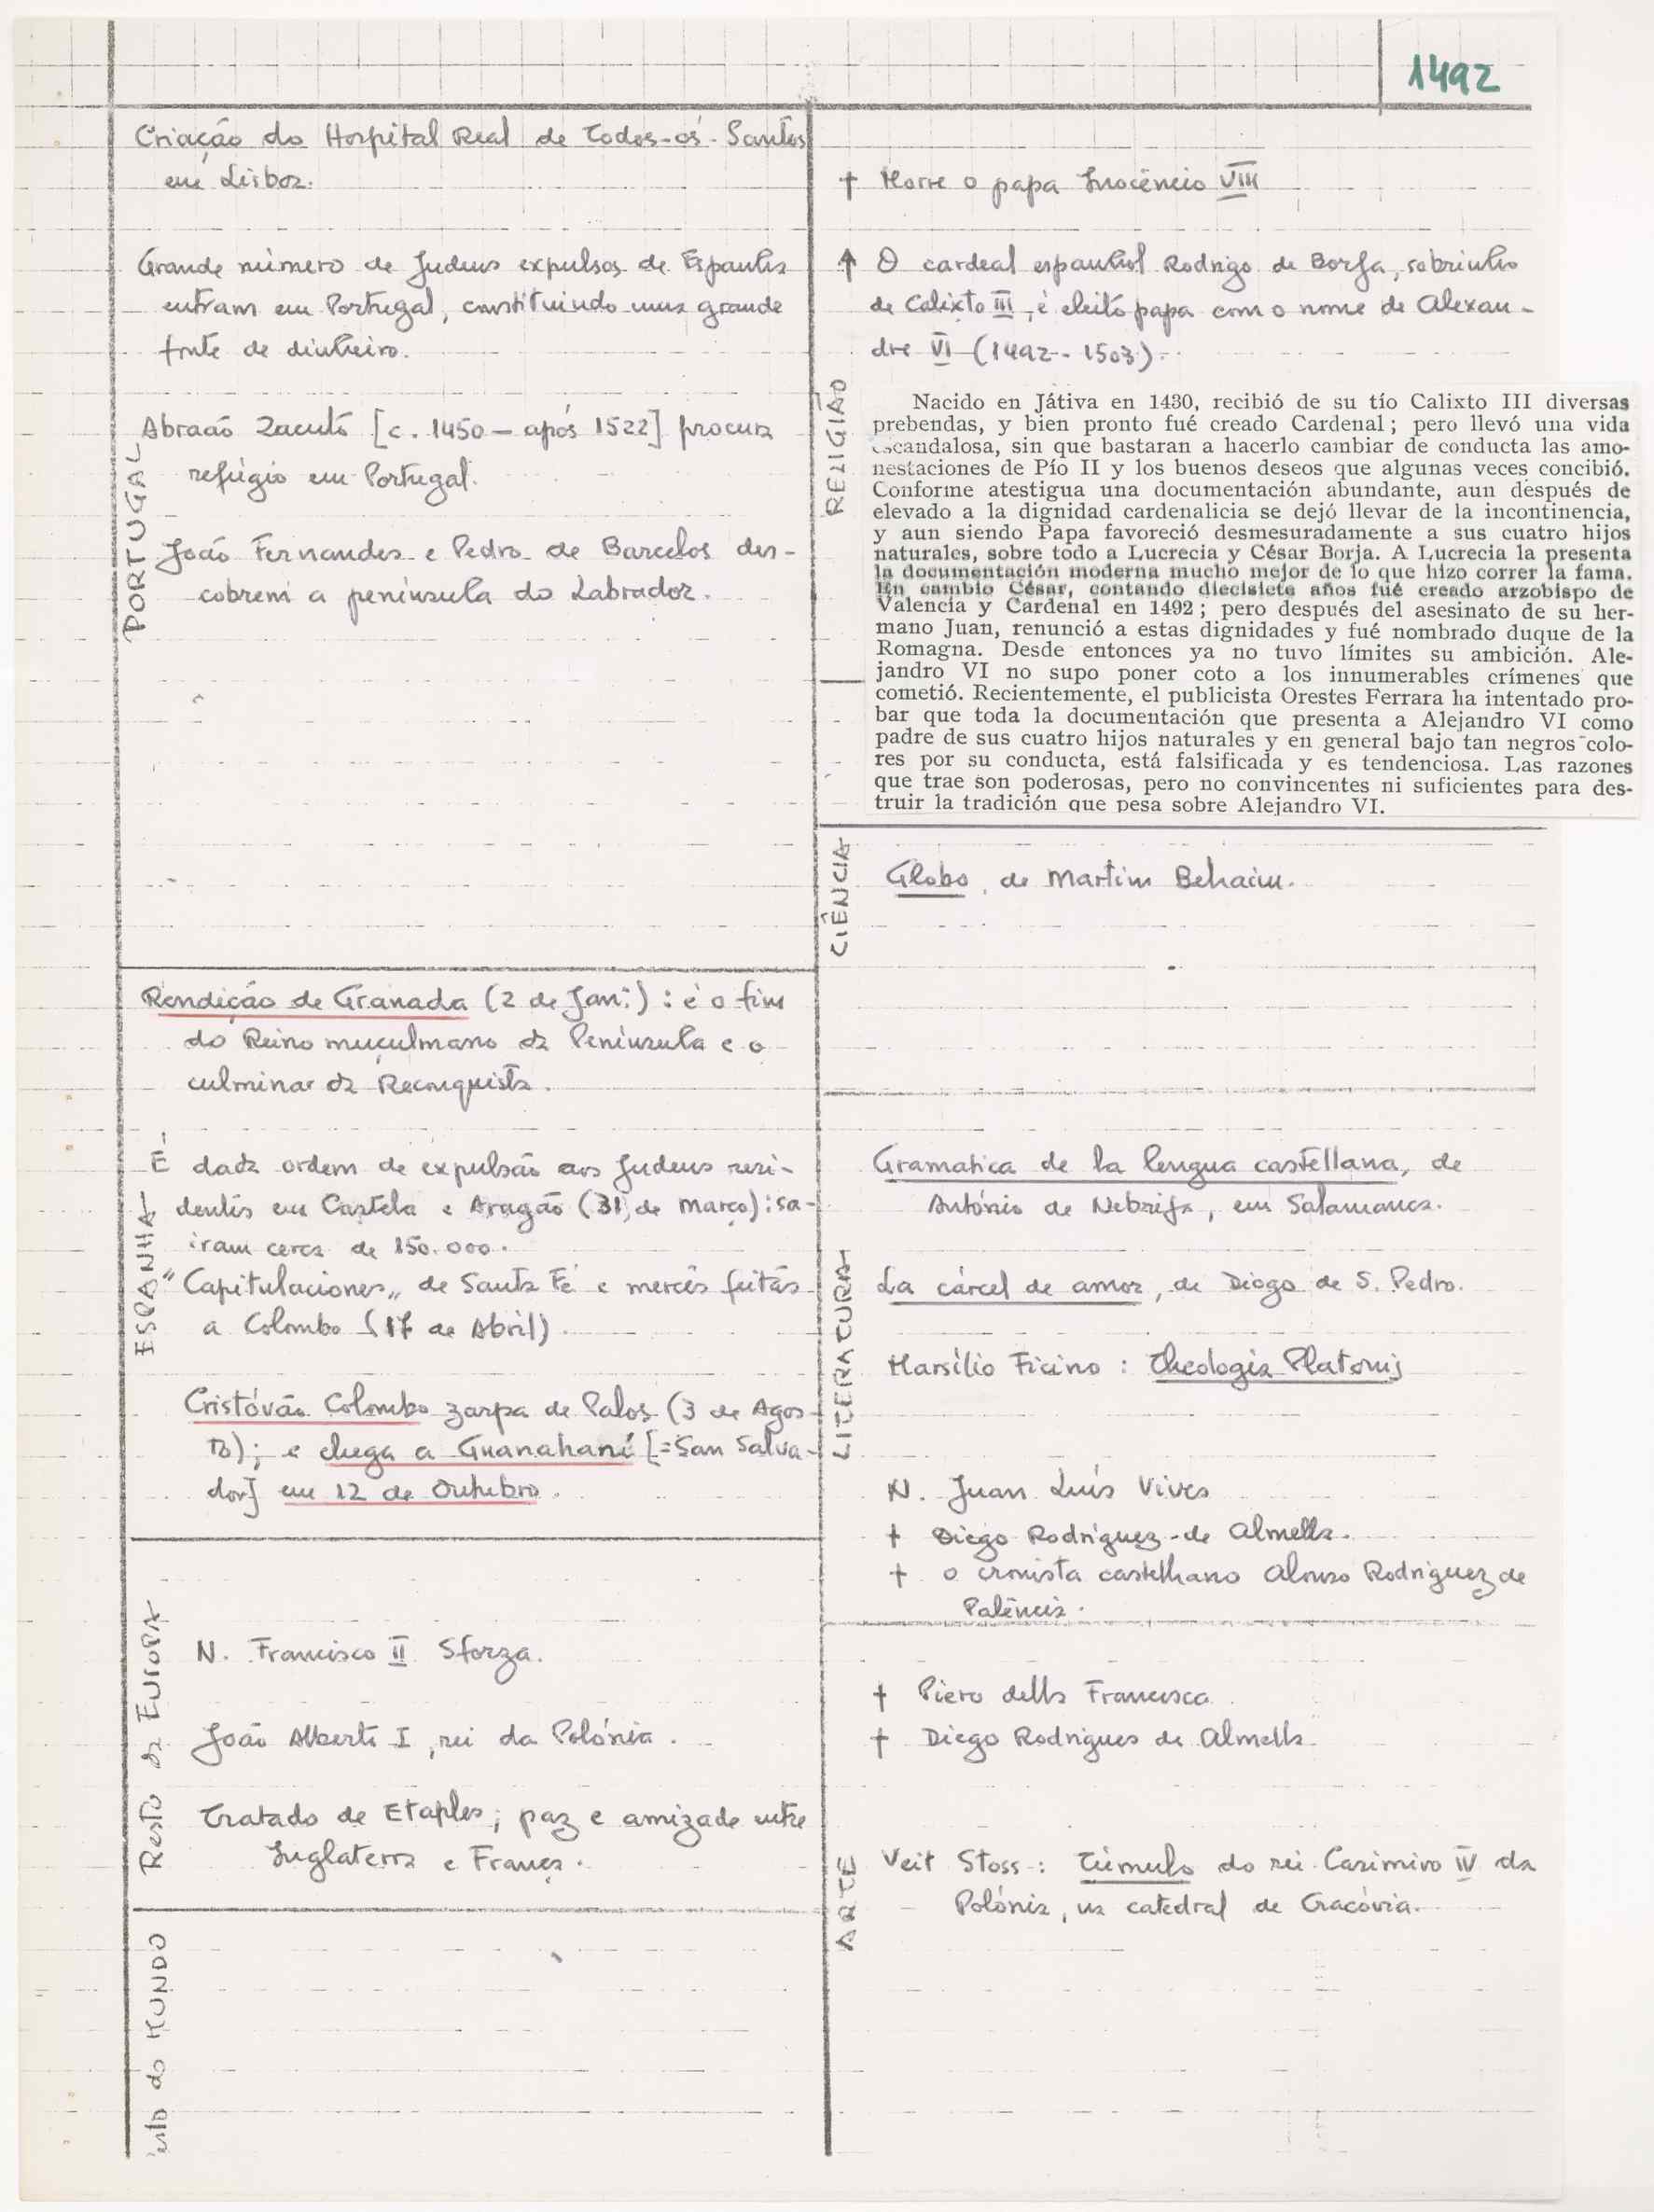 1492
PORTUGAL
Criação do Hospital Real de Todos-os-Santos
em Lisboa.
Grande número de Judeus expulsos de Espanha
entram em Portugal, constituindo uma grande
fonte de dinheiro.
Abraão Zacuto [c. 1450 — após 1522] procura
refúgio em Portugal.
João Fernandes e Pedro de Barcelos des-
cobrem a península do Labrador.
ESPANHA
Rendição de Granada (2 de Jan.): é o fim
do Reino muçulmano da Península e o
culminar da Reconquista.
É dada ordem de expulsão aos Judeus resi-
dentes em Castela e Aragão (31 de Março): sa-
iram cerca de 150.000.
"Capitulaciones" de Santa Fé e mercês feitas
a Colombo (17 de Abril).
Cristóvão Colombo zarpa de Palos (3 de Agos-
to); e chega a Guanahaní [=San Salva-
dor] em 12 de Outubro.
Resto da EUROPA
N. Francisco II Sforza.
João Alberto I, rei da Polónia.
Tratado de Etaples; paz e amizade entre
Inglaterra e França.
do MUNDO
RELIGIÃO
† Morre o papa Inocêncio VIII
↑ O cardeal espanhol Rodrigo de Borja, sobrinho
de Calixto III, é eleito papa com o nome de Alexan-
dre VI (1492-1503).
Nacido en Játiva en 1430, recibió de su tío Calixto III diversas
prebendas, y bien pronto fué creado Cardenal; pero llevó una vida
escandalosa, sin que bastaran a hacerlo cambiar de conducta las amo-
nestaciones de Pío II y los buenos deseos que algunas veces concibió.
Conforme atestigua una documentación abundante, aun después de
elevado a la dignidad cardenalicia se dejó llevar de la incontinencia,
y aun siendo Papa favoreció desmesuradamente a sus cuatro hijos
naturales, sobre todo a Lucrecia y César Borja. A Lucrecia la presenta
la documentación moderna mucho mejor de lo que hizo correr la fama.
En cambio César, contando diecisiete años fué creado arzobispo de
Valencia y Cardenal en 1492; pero después del asesinato de su her-
mano Juan, renunció a estas dignidades y fué nombrado duque de la
Romagna. Desde entonces ya no tuvo límites su ambición. Ale-
jandro VI no supo poner coto a los innumerables crímenes que
cometió. Recientemente, el publicista Orestes Ferrara ha intentado pro-
bar que toda la documentación que presenta a Alejandro VI como
padre de sus cuatro hijos naturales y en general bajo tan negros colo-
res por su conducta, está falsificada y es tendenciosa. Las razones
que trae son poderosas, pero no convincentes ni suficientes para des-
truir la tradición que pesa sobre Alejandro VI.
CIÊNCIA
Globo, de Martim Behaim.
LITERATURA
Gramatica de la lengua castellana, de
António de Nebrija, em Salamanca.
La cárcel de amor, de Diogo de S. Pedro.
Marsílio Ficino: Theologia Platonis
N. Juan Luís Vives
† Diego Rodríguez de Almella.
† o cronista castelhano Alonso Rodriguez de
Palência.
ARTE
† Piero della Francesca
† Diego Rodrigues de Almella
Veit Stoss: Túmulo do rei Casimiro IV da
Polónia, na catedral de Cracóvia.